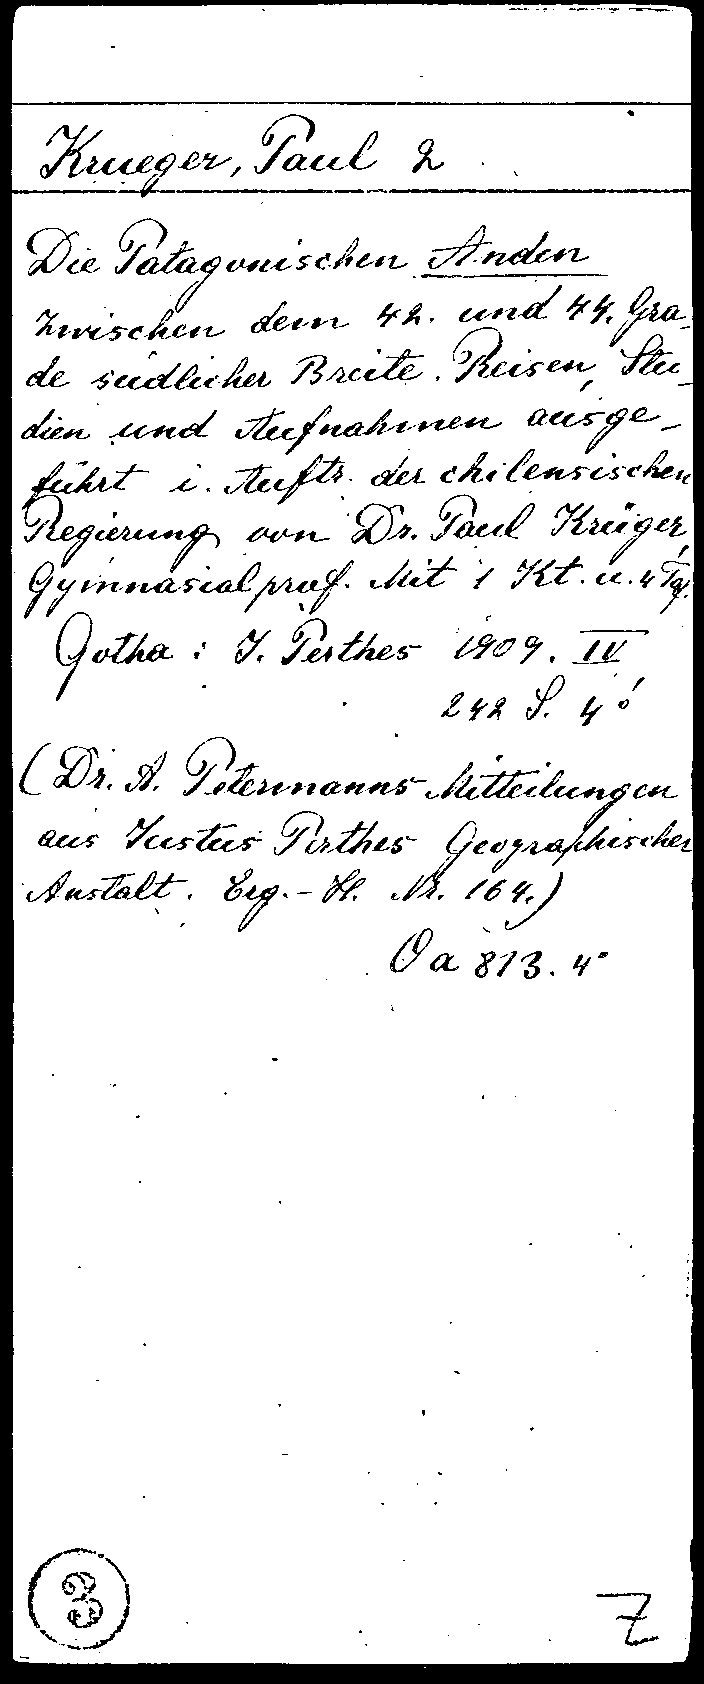 Krueger, Paul 2
Die Patagonischen Anden
zwischen dem 42. und 44. Gra-
de südlicher Breite. Reisen, Stu-
dien und Aufnahmen ausge-
führt i. Auftr. der chilensischen
Regierung von Dr. Paul Krüger,
Gymnasialprof. Mit 1 Kt. u. 4 Taf.
Gotha: J. Perthes 1909. IV
242 S. 4°
(Dr. A. Petermanns Mitteilungen
aus Justus Perthes Geographischer
Anstalt. Erg.-H. Nr. 164.)
Oa 813. 4°
3
Z